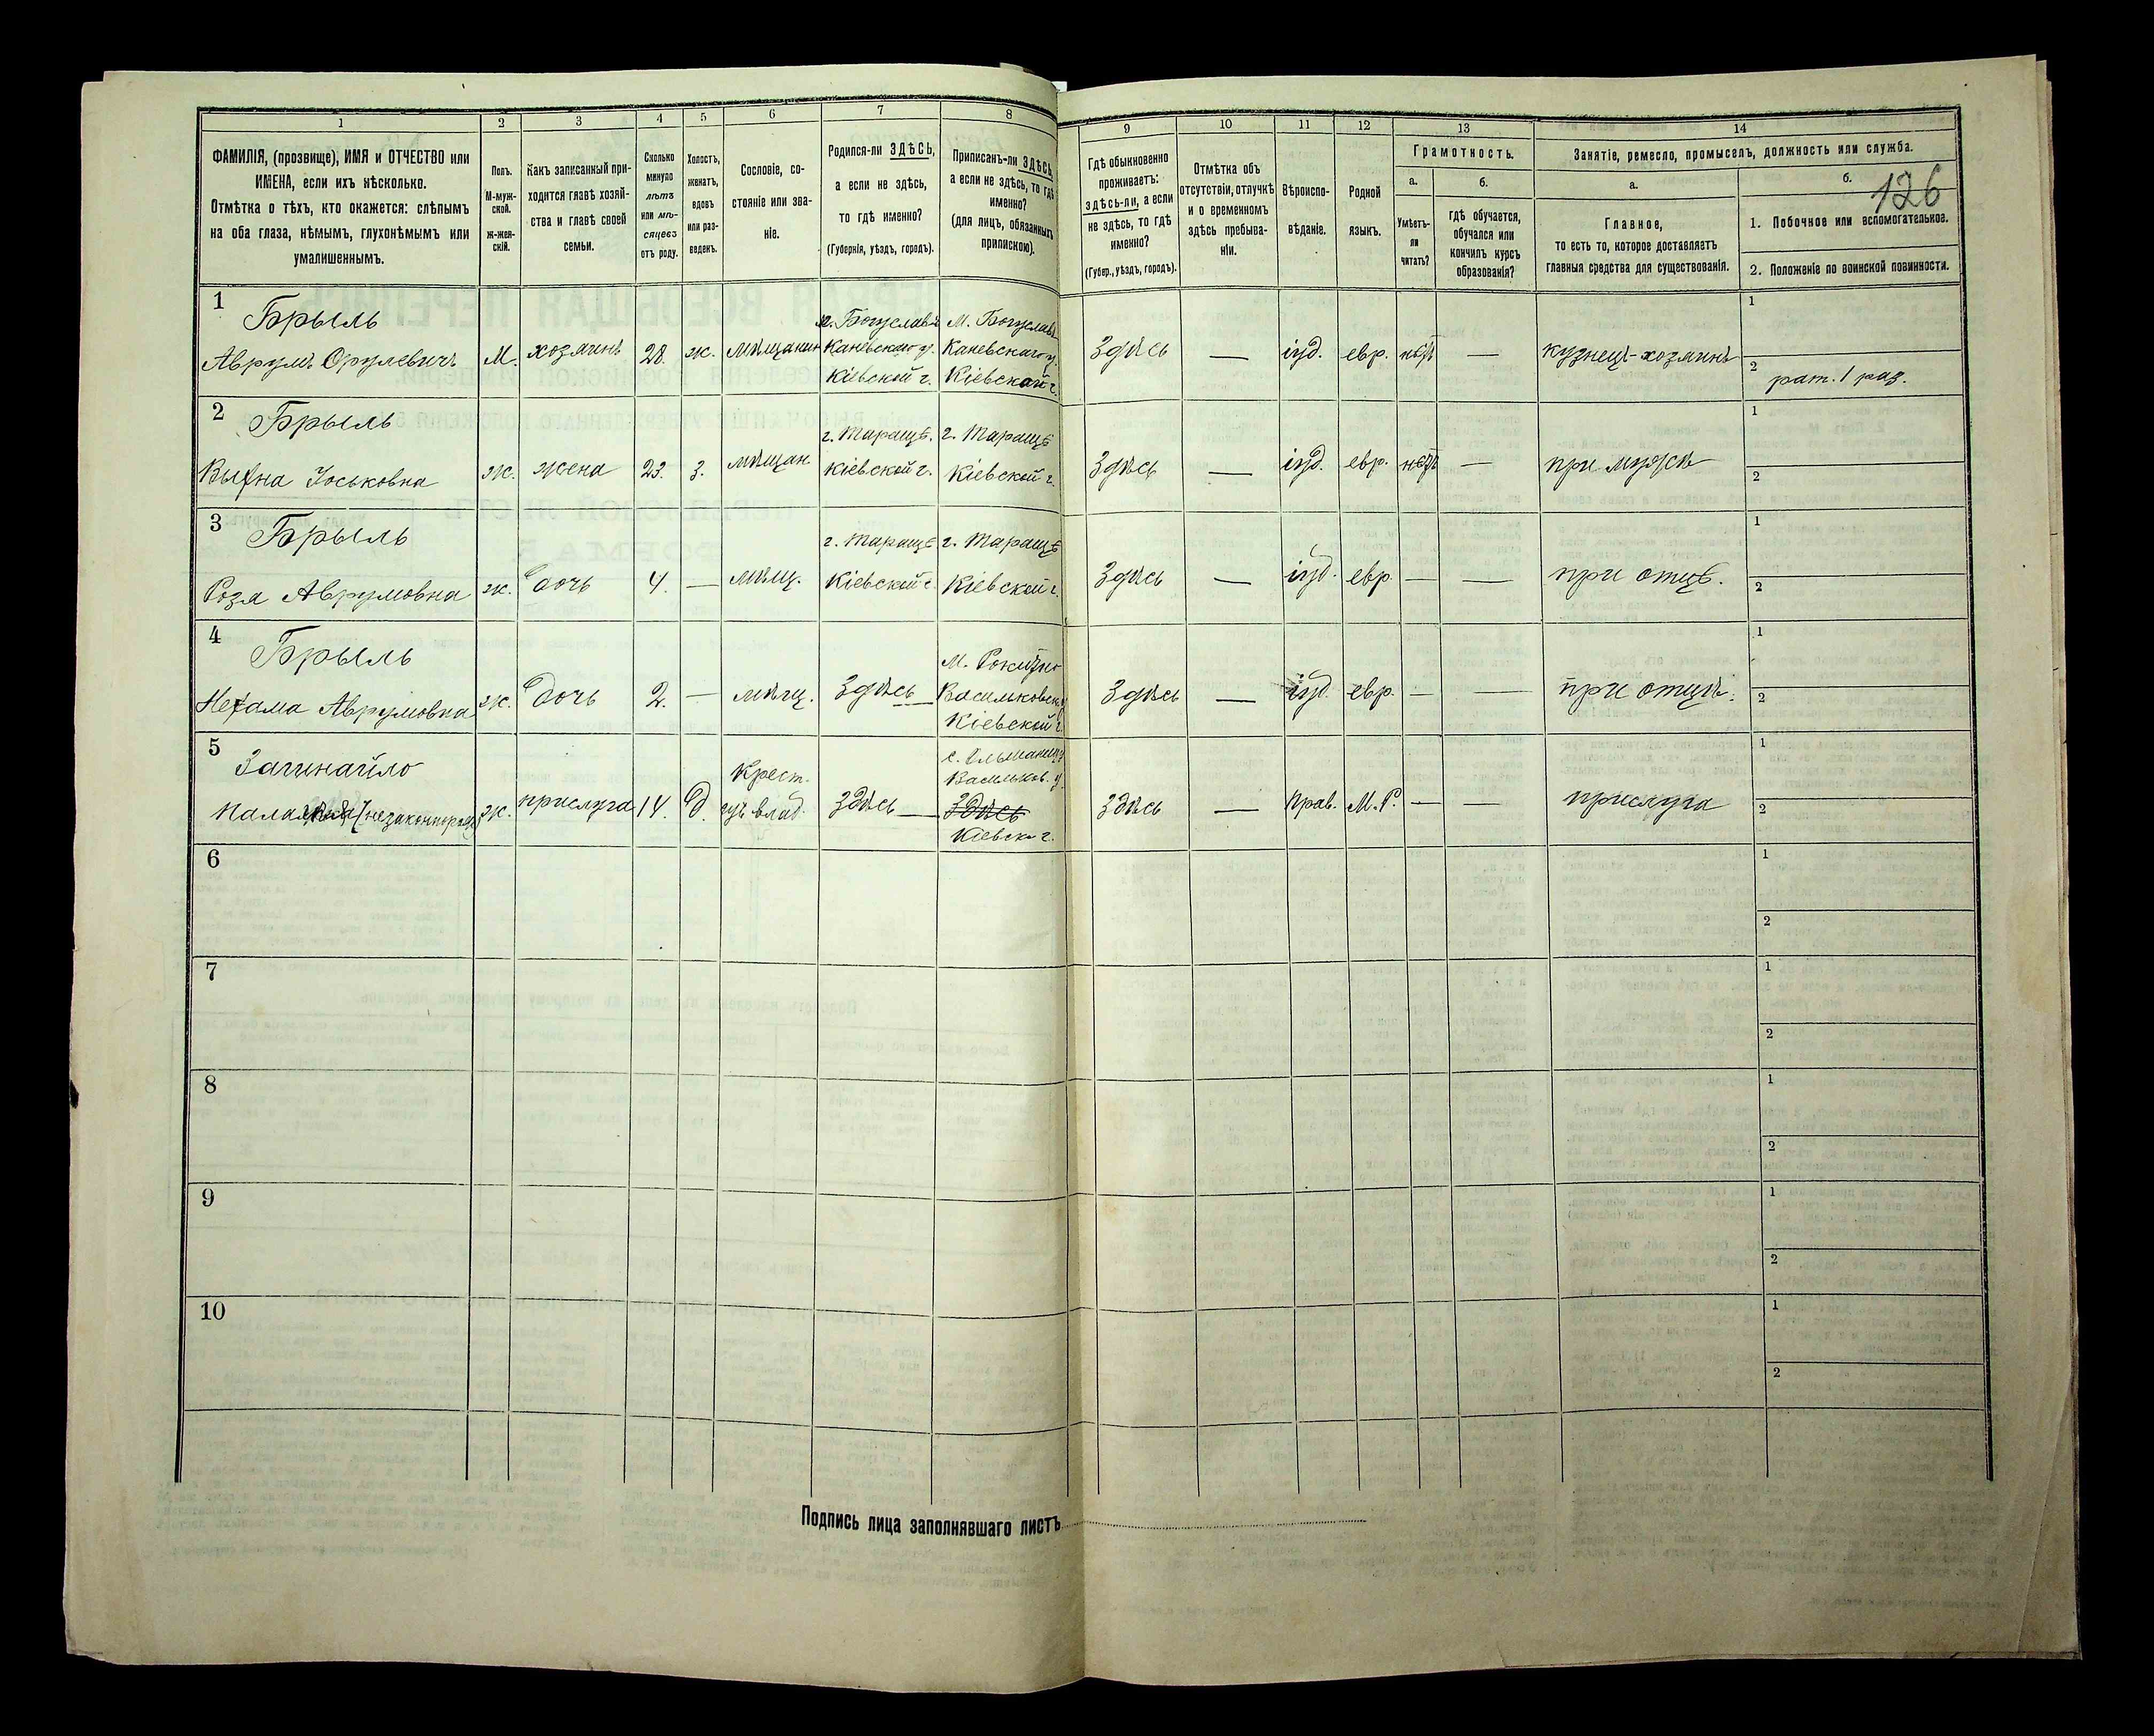 126
1
2
3
4
5
6
7
8
9
10
11
12
13
14
ФАМИЛІЯ, (прозвище), ИМЯ и ОТЧЕСТВО или
ИМЕНА, если ихъ нѣсколько.
Отмѣтка о тѣхъ, кто окажется: слѣпымъ
на оба глаза, нѣмымъ, глухонѣмымъ или
умалишеннымъ.
Полъ.
М-муж-
ской.
Ж-жен-
скій.
Какъ записанный при-
ходится главѣ хозяй-
ства и главѣ своей
семьи.
Сколько
минуло
лѣтъ
или мѣ-
сяцевъ
отъ роду.
Холостъ,
женатъ,
вдовъ
или раз-
веденъ.
Сословіе, со-
стояніе или зва-
ніе.
Родился-ли ЗДѢСЬ,
а если не здѣсь,
то гдѣ именно?
(Губернія, уѣздъ, городъ).
Приписанъ-ли ЗДѢСЬ,
а если не здѣсь, то гдѣ
именно?
(для лицъ, обязанныхъ
припискою).
Гдѣ обыкновенно
проживаетъ:
здѣсь-ли, а если
не здѣсь, то гдѣ
именно?
(Губер., уѣздъ, городъ).
Отмѣтка объ
отсутствіи, отлучкѣ
и о временномъ
здѣсь пребыва-
ніи.
Вѣроиспо-
вѣданіе.
Родной
языкъ.
Грамотность.
а.
Умѣетъ-
ли
читать?
б.
гдѣ обучается,
обучался или
кончилъ курсъ
образованія?
Занятіе, ремесло, промыселъ, должность или служба.
а.
Главное,
то есть то, которое доставляетъ
главныя средства для существованія.
б.
1. Побочное или вспомогательное.
2. Положеніе по воинской повинности.
1
Брыль
Аврумъ Срулевичъ
М.
хозяинъ
28
ж.
мѣщанин
м. Богуславѣ
Каневскаго у.
Кіевской г.
М. Богуславѣ
Каневскаго у.
Кіевской г.
Здѣсь
—
іуд.
евр.
нѣтъ
—
кузнецъ-хозяинъ
1
2
рат. 1 раз.
2
Брыль
Иоськовна
ж.
жена
23.
з.
мѣщан.
г. Таращѣ.
Кіевской г.
г. Таращѣ
Кіевской г.
Здѣсь
—
іуд.
евр.
нѣтъ
—
при мужѣ
1
2
3
Брыль
Роза Аврумовна
ж.
дочь
4.
—
мѣщ.
г. Таращѣ
Кіевской г.
г. Таращѣ
Кіевской г.
Здѣсь
—
іуд.
евр.
—
—
при отцѣ.
1
2
4
Брыль
Нехама Аврумовна
ж.
дочь
2.
—
мѣщ.
Здѣсь
М. Рокитно
Васильковск. у.
Кіевской г.
Здѣсь
—
іуд.
евр.
—
—
при отцѣ.
1
2
5
ж.
прислуга
14.
д.
Крест.
влад.
здѣсь
Васильков. у.
Здѣсь
Кіевско г.
здѣсь
—
прав.
М. Р.
—
—
прислуга
1
2
6
1
2
7
1
2
8
1
2
9
1
2
10
1
2
Подпись лица заполнявшаго листъ